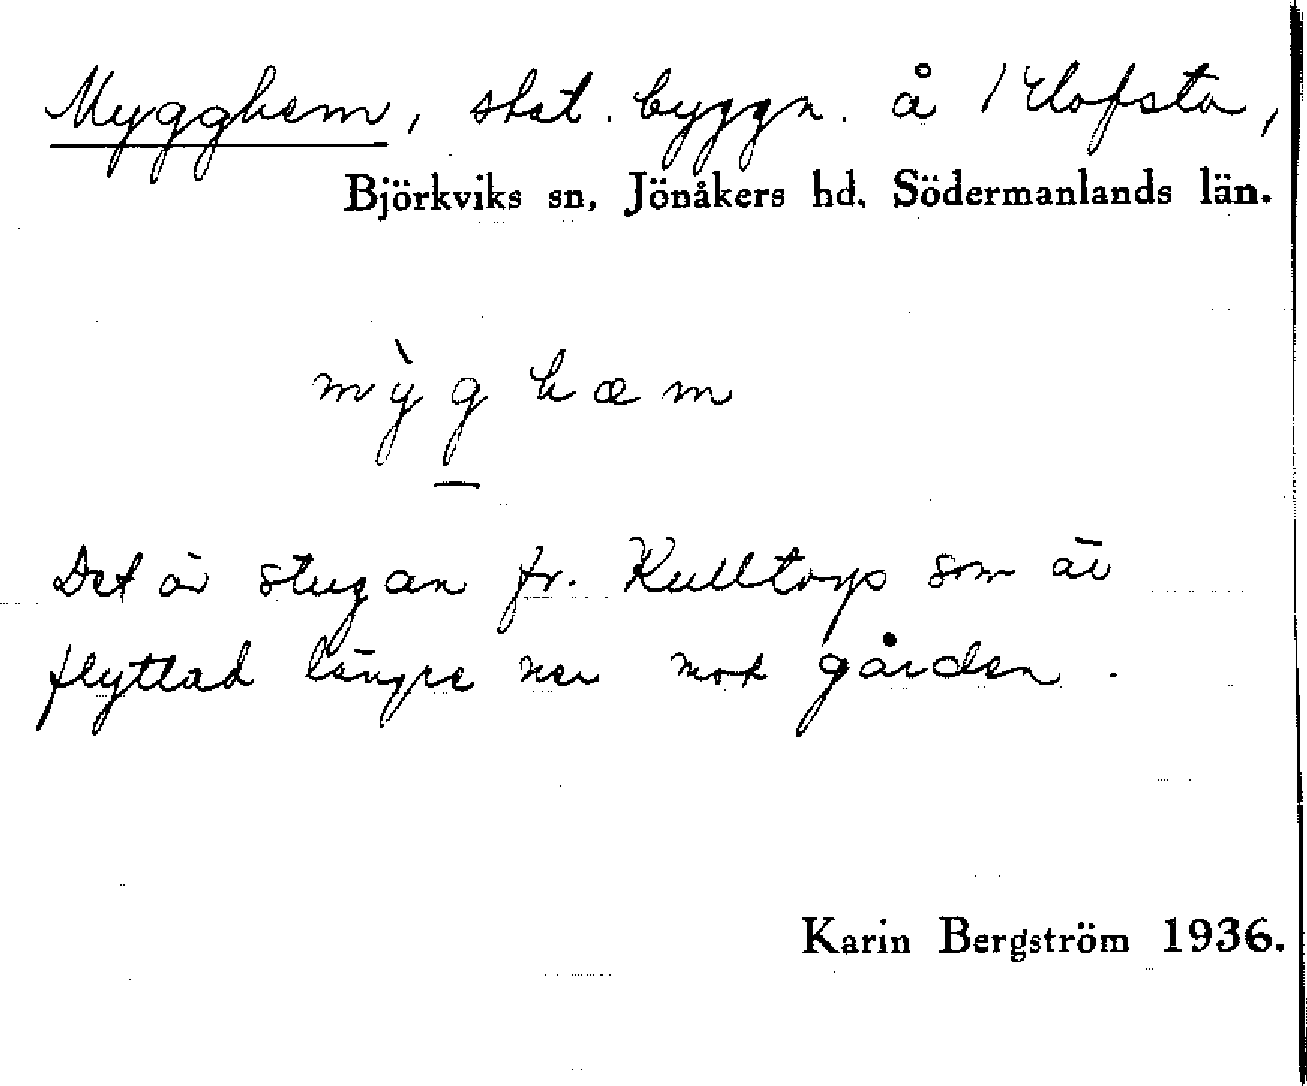 Mygghem, stat. byggn. å 1 Elofsta,
Björkviks sn, Jönåkers hd, Södermanlands län.
mỳg hæm
Det är stugan fr. Kulltorp som är
flyttad längre ner mot gården.
Karin Bergström 1936.